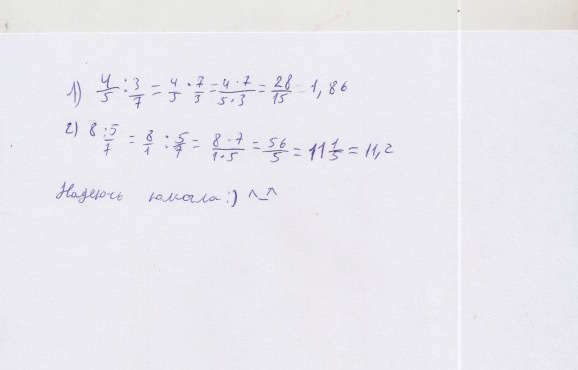 1) 4/5 : 3/7 = 4/5 · 7/3 = 4·7/5·3 = 28/15 = 1,86
2) 8 : 5/7 = 8/1 : 5/7 = 8·7/1·5 = 56/5 = 11 1/5 = 11,2
Надеюсь :) ^_^